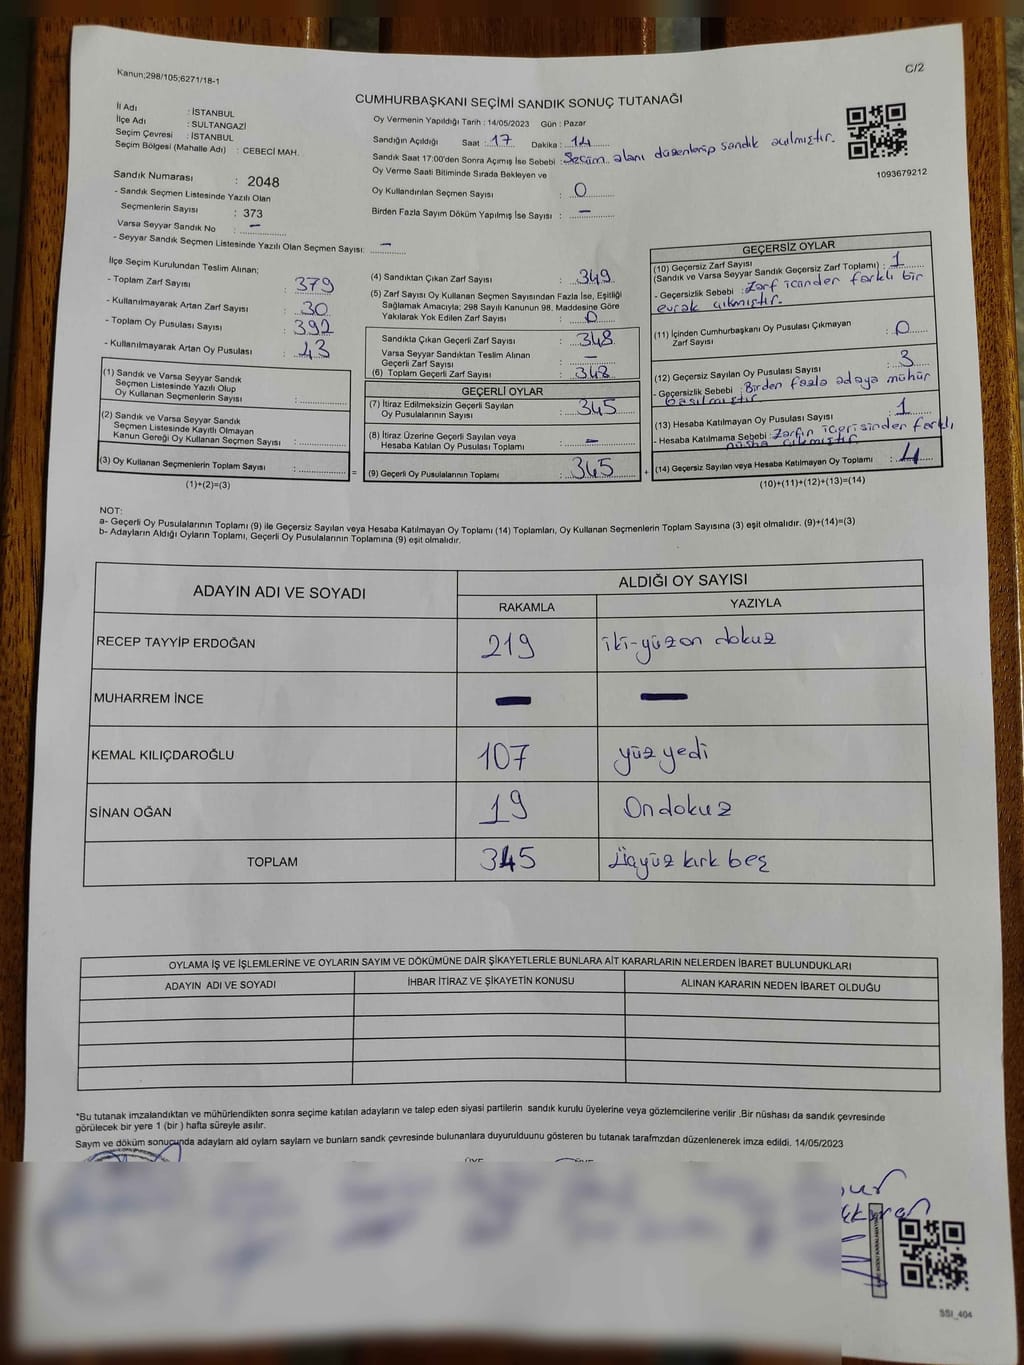 Kanun;298/105;6271/18-1
C/2
CUMHURBAŞKANI SEÇİMİ SANDIK SONUÇ TUTANAĞI
İl Adı : İSTANBUL
İlçe Adı : SULTANGAZİ
Seçim Çevresi : İSTANBUL
Seçim Bölgesi (Mahalle Adı) : CEBECİ MAH.
Oy Vermenin Yapıldığı Tarih : 14/05/2023 Gün : Pazar
Sandığın Açıldığı Saat : 17 Dakika : 14
Sandık Saat 17:00'den Sonra Açımış İse Sebebi : Seçim alanı düzenlenip sandık açılmıştır.
Oy Verme Saati Bitiminde Sırada Bekleyen ve
Oy Kullandırılan Seçmen Sayısı : 0
Birden Fazla Sayım Döküm Yapılmış İse Sayısı : –
1093679212
Sandık Numarası : 2048
- Sandık Seçmen Listesinde Yazılı Olan
Seçmenlerin Sayısı : 373
Varsa Seyyar Sandık No : –
- Seyyar Sandık Seçmen Listesinde Yazılı Olan Seçmen Sayısı: –
İlçe Seçim Kurulundan Teslim Alınan;
- Toplam Zarf Sayısı : 379
- Kullanılmayarak Artan Zarf Sayısı : 30
- Toplam Oy Pusulası Sayısı : 392
- Kullanılmayarak Artan Oy Pusulası : 43
(1) Sandık ve Varsa Seyyar Sandık
Seçmen Listesinde Yazılı Olup
Oy Kullanan Seçmenlerin Sayısı :
(2) Sandık ve Varsa Seyyar Sandık
Seçmen Listesinde Kayıtlı Olmayan
Kanun Gereği Oy Kullanan Seçmen Sayısı :
(3) Oy Kullanan Seçmenlerin Toplam Sayısı : =
(1)+(2)=(3)
(4) Sandıktan Çıkan Zarf Sayısı : 349
(5) Zarf Sayısı Oy Kullanan Seçmen Sayısından Fazla İse, Eşitliği
Sağlamak Amacıyla; 298 Sayılı Kanunun 98. Maddesine Göre
Yakılarak Yok Edilen Zarf Sayısı : 0
Sandıkta Çıkan Geçerli Zarf Sayısı : 348
Varsa Seyyar Sandıktan Teslim Alınan
Geçerli Zarf Sayısı : –
(6) Toplam Geçerli Zarf Sayısı : 348
GEÇERLİ OYLAR
(7) İtiraz Edilmeksizin Geçerli Sayılan
Oy Pusulalarının Sayısı : 345
(8) İtiraz Üzerine Geçerli Sayılan veya
Hesaba Katılan Oy Pusulası Toplamı : –
(9) Geçerli Oy Pusulalarının Toplamı : 345 +
GEÇERSİZ OYLAR
(10) Geçersiz Zarf Sayısı
(Sandık ve Varsa Seyyar Sandık Geçersiz Zarf Toplamı) : 1
- Geçersizlik Sebebi : Zarf içinden farklı bir
evrak çıkmıştır.
(11) İçinden Cumhurbaşkanı Oy Pusulası Çıkmayan
Zarf Sayısı : 0
(12) Geçersiz Sayılan Oy Pusulası Sayısı : 3
- Geçersizlik Sebebi : Birden fazla adaya mühür
basılmıştır
(13) Hesaba Katılmayan Oy Pusulası Sayısı : 1
- Hesaba Katılmama Sebebi : Zarfın içerisinden farklı
nüsha çıkmıştır
(14) Geçersiz Sayılan veya Hesaba Katılmayan Oy Toplamı : 4
(10)+(11)+(12)+(13)=(14)
NOT:
a- Geçerli Oy Pusulalarının Toplamı (9) ile Geçersiz Sayılan veya Hesaba Katılmayan Oy Toplamı (14) Toplamları, Oy Kullanan Seçmenlerin Toplam Sayısına (3) eşit olmalıdır. (9)+(14)=(3)
b- Adayların Aldığı Oyların Toplamı, Geçerli Oy Pusulalarının Toplamına (9) eşit olmalıdır.
ADAYIN ADI VE SOYADI ALDIĞI OY SAYISI
RAKAMLA YAZIYLA
RECEP TAYYİP ERDOĞAN 219 iki-yüz on dokuz
MUHARREM İNCE – –
KEMAL KILIÇDAROĞLU 107 yüz yedi
SİNAN OĞAN 19 On dokuz
TOPLAM 345 Üçyüz kırk beş
OYLAMA İŞ VE İŞLEMLERİNE VE OYLARIN SAYIM VE DÖKÜMÜNE DAİR ŞİKAYETLERLE BUNLARA AİT KARARLARIN NELERDEN İBARET BULUNDUKLARI
ADAYIN ADI VE SOYADI İHBAR İTİRAZ VE ŞİKAYETİN KONUSU ALINAN KARARIN NEDEN İBARET OLDUĞU
*Bu tutanak imzalandıktan ve mühürlendikten sonra seçime katılan adayların ve talep eden siyasi partilerin sandık kurulu üyelerine veya gözlemcilerine verilir .Bir nüshası da sandık çevresinde
görülecek bir yere 1 (bir ) hafta süreyle asılır.
Sayım ve döküm sonuçunda adayların aldı oyların sayların ve bunların sandk çevresinde bulunanlara duyurulduunu gösteren bu tutanak tarafmzdan düzenlenerek imza edildi. 14/05/2023
SSI_404